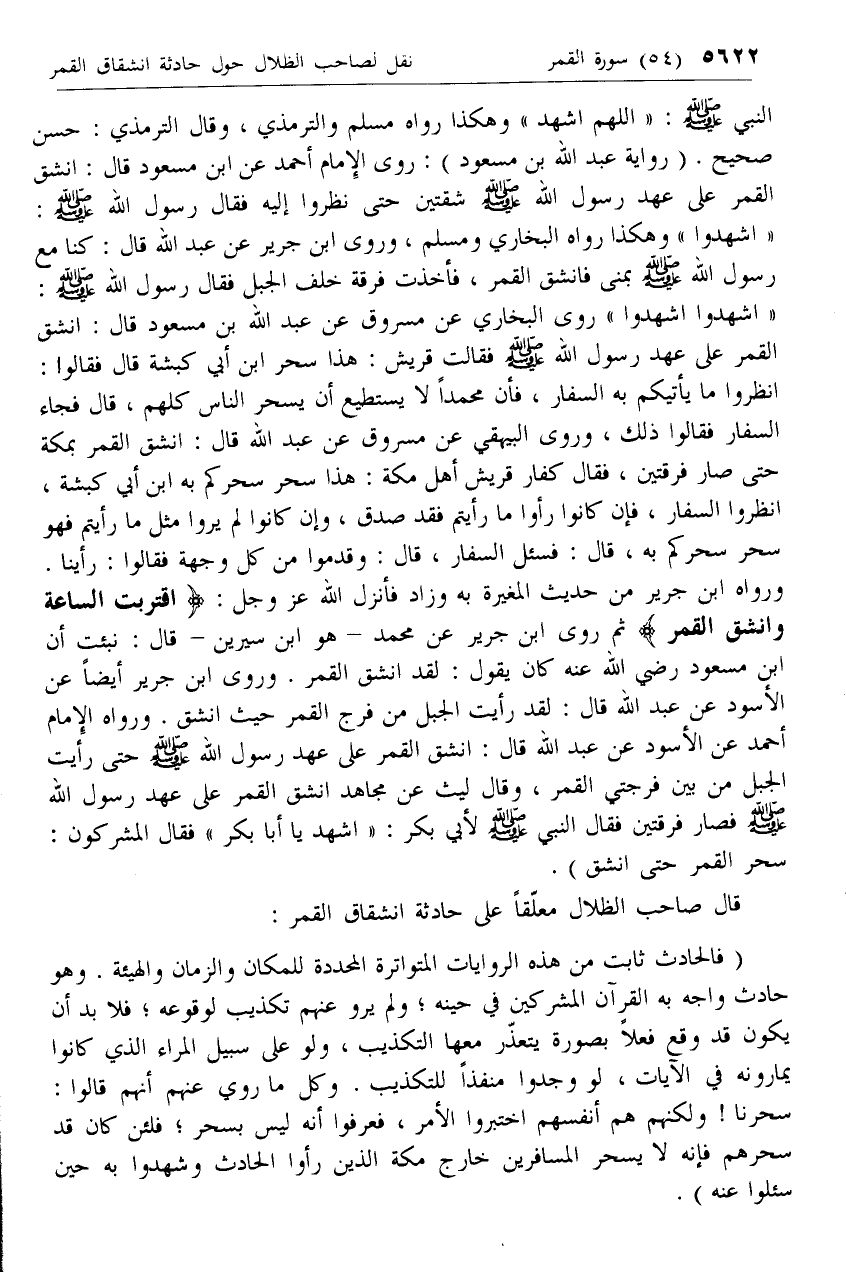 ٥٦٢٢ (٥٤) سورة القمر نقل لصاحب الظلال حول حادثة انشقاق القمر
النبي ﷺ : « اللهم اشهد » وهكذا رواه مسلم والترمذي ، وقال الترمذي : حسن
صحيح . ( رواية عبد الله بن مسعود ) : روى الإمام أحمد عن ابن مسعود قال : انشق
القمر على عهد رسول الله ﷺ شقتين حتى نظروا إليه فقال رسول الله ﷺ :
« اشهدوا » وهكذا رواه البخاري ومسلم ، وروى ابن جرير عن عبد الله قال : كنا مع
رسول الله ﷺ بمنى فانشق القمر ، فأخذت فرقة خلف الجبل فقال رسول الله ﷺ :
« اشهدوا اشهدوا » روى البخاري عن مسروق عن عبد الله بن مسعود قال : انشق
القمر على عهد رسول الله ﷺ فقالت قريش : هذا سحر ابن أبي كبشة قال فقالوا :
انظروا ما يأتيكم به السفار ، فأن محمداً لا يستطيع أن يسحر الناس كلهم ، قال فجاء
السفار فقالوا ذلك ، وروى البيهقي عن مسروق عن عبد الله قال : انشق القمر بمكة
حتى صار فرقتين ، فقال كفار قريش أهل مكة : هذا سحر سحركم به ابن أبي كبشة ،
انظروا السفار ، فإن كانوا رأوا ما رأيتم فقد صدق ، وإن كانوا لم يروا مثل ما رأيتم فهو
سحر سحركم به ، قال : فسئل السفار ، قال : وقدموا من كل وجهة فقالوا : رأينا .
ورواه ابن جرير من حديث المغيرة به وزاد فأنزل الله عز وجل : ﴿ اقتربت الساعة
وانشق القمر ﴾ ثم روى ابن جرير عن محمد – هو ابن سيرين – قال : نبئت أن
ابن مسعود رضي الله عنه كان يقول : لقد انشق القمر . وروى ابن جرير أيضاً عن
الأسود عن عبد الله قال : لقد رأيت الجبل من فرج القمر حيث انشق . ورواه الإمام
أحمد عن الأسود عن عبد الله قال : انشق القمر على عهد رسول الله ﷺ حتى رأيت
الجبل من بين فرجتي القمر ، وقال ليث عن مجاهد انشق القمر على عهد رسول الله
ﷺ فصار فرقتين فقال النبي ﷺ لأبي بكر : « اشهد يا أبا بكر » فقال المشركون :
سحر القمر حتى انشق ) .
قال صاحب الظلال معلّقاً على حادثة انشقاق القمر :
( فالحادث ثابت من هذه الروايات المتواترة المحددة للمكان والزمان والهيئة . وهو
حادث واجه به القرآن المشركين في حينه ؛ ولم يرو عنهم تكذيب لوقوعه ؛ فلا بد أن
يكون قد وقع فعلاً بصورة يتعذّر معها التكذيب ، ولو على سبيل المراء الذي كانوا
يمارونه في الآيات ، لو وجدوا منفذاً للتكذيب . وكل ما روي عنهم أنهم قالوا :
سحرنا ! ولكنهم هم أنفسهم اختبروا الأمر ، فعرفوا أنه ليس بسحر ؛ فلئن كان قد
سحرهم فإنه لا يسحر المسافرين خارج مكة الذين رأوا الحادث وشهدوا به حين
سئلوا عنه ) .